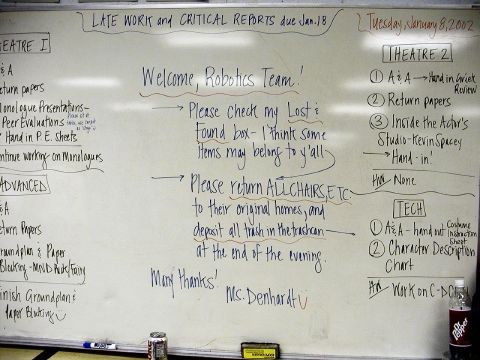 LATE WORK and CRITICAL REPORTS due Jan. 18
Tuesday, January 8, 2002
EATRE I
& A
eturn papers
onologue Presentations-
Peer Evaluations
Hand in P.E. sheets
ntinue working on Monologues
ADVANCED
& A
eturn Papers
roundplan & Paper
Blocking-MND
inish Groundplan &
Paper Blocking
Welcome, Robotics Team!
→ Please check my Lost &
Found box - I think some
items may belong to y'all
→ Please return ALL CHAIRS, ETC.
to their original homes, and
deposit all trash in the trashcan
at the end of the evening.
Many thanks!
Ms. Denhardt
THEATRE 2
① A & A → Hand in Greek
Review
② Return papers
③ Inside the Actor's
Studio-Kevin Spacey
→ Hand-in!
HW None
TECH
① A&A - hand out Costume
Instruction
Sheet
② Character Description
Chart
HW - Work on C-D